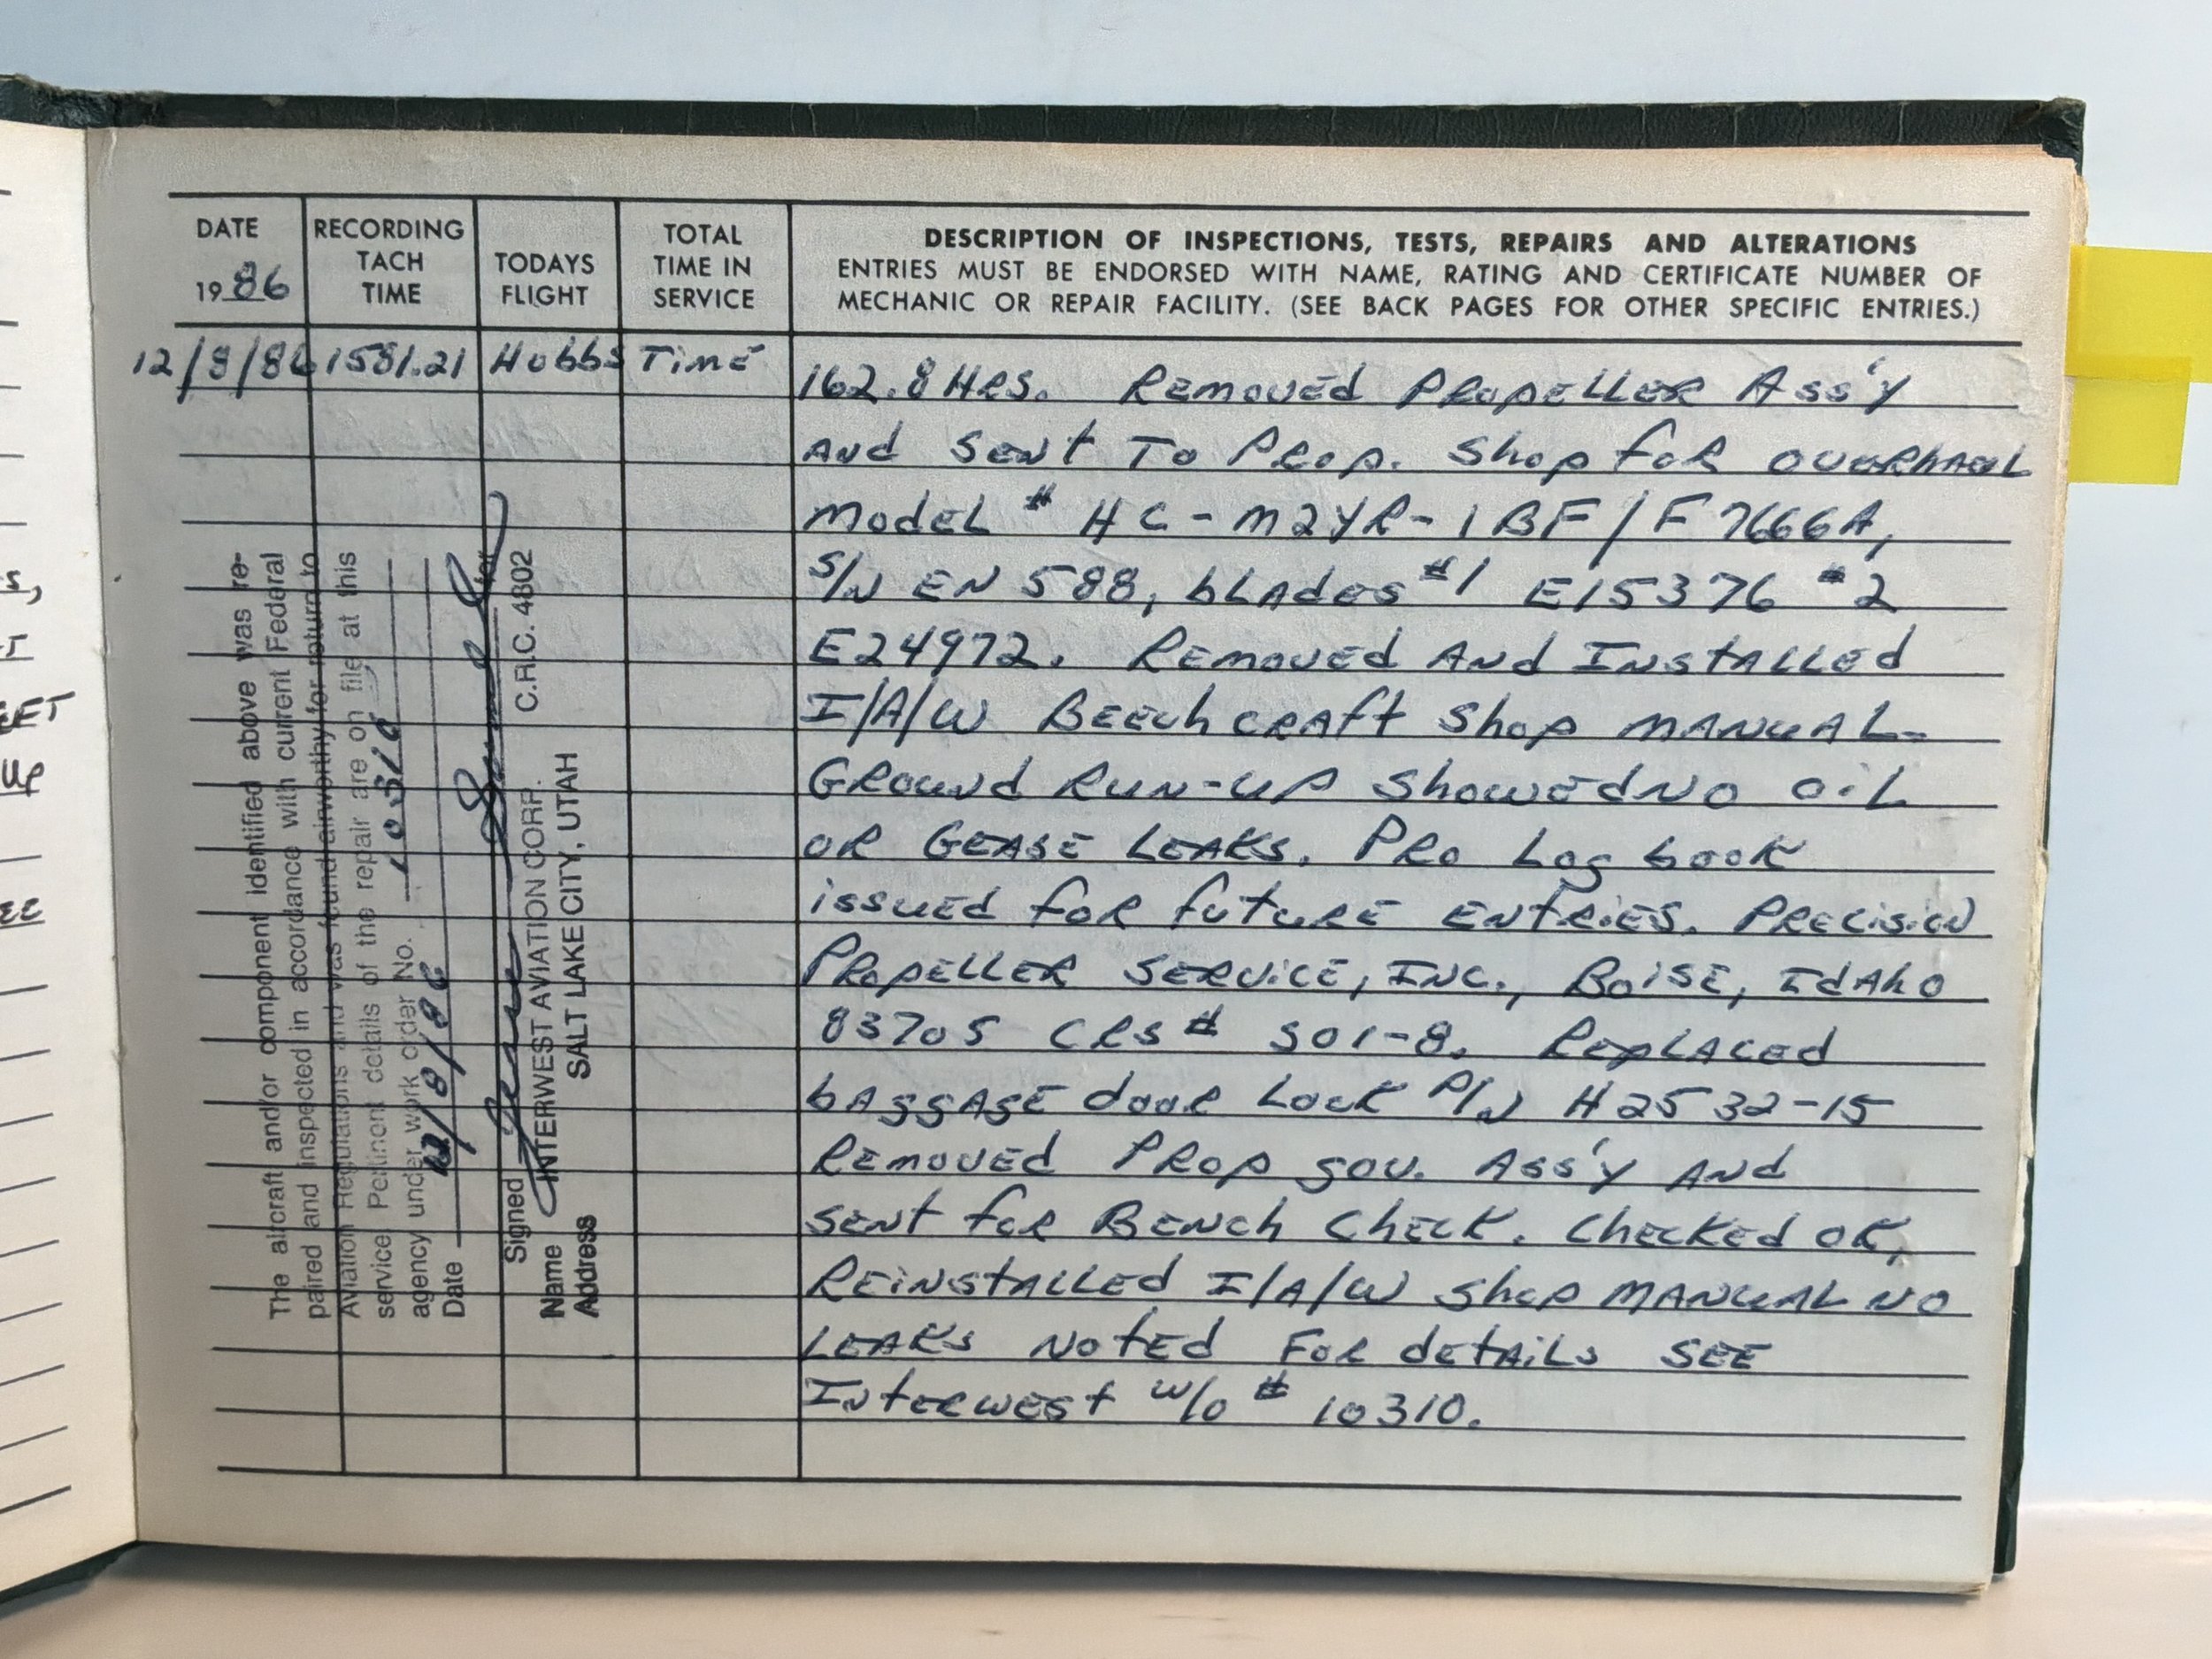 DATE
1986
RECORDING
TACH
TIME
TODAYS
FLIGHT
TOTAL
TIME IN
SERVICE
DESCRIPTION OF INSPECTIONS, TESTS, REPAIRS AND ALTERATIONS
ENTRIES MUST BE ENDORSED WITH NAME, RATING AND CERTIFICATE NUMBER OF
MECHANIC OR REPAIR FACILITY. (SEE BACK PAGES FOR OTHER SPECIFIC ENTRIES.)
12/8/86 1581.21 Hobbs Time 162.8 HRS. Removed Propeller Ass'y
And Sent To Prop. Shop for overhaul
Model # HC-M2YR-1BF/F7666A,
S/N EN 588, blades #1 E15376 #2
E24972. Removed And Installed
I/A/W Beechcraft Shop Manual.
Ground Run-up Showed no oil
or Gease Leaks. Pro Log book
issued for future Entries. Precision
Propeller Service, Inc., Boise, Idaho
83705 CRS # 301-8. Replaced
baggage door Lock P/N H2532-15
Removed Prop gov. Ass'y And
sent for Bench Check. Checked OK,
Reinstalled I/A/W Shop Manual no
Leaks Noted For details See
Interwest W/O # 10310.
The aircraft and/or component identified above was re-
paired and inspected in accordance with current Federal
Aviation Regulations and was found airworthy for return to
service. Pertinent details of the repair are on file at this
agency under work order No. 10310
Date 12/8/86
Signed for
Name INTERWEST AVIATION CORP. C.R.C. 4802
Address SALT LAKE CITY, UTAH